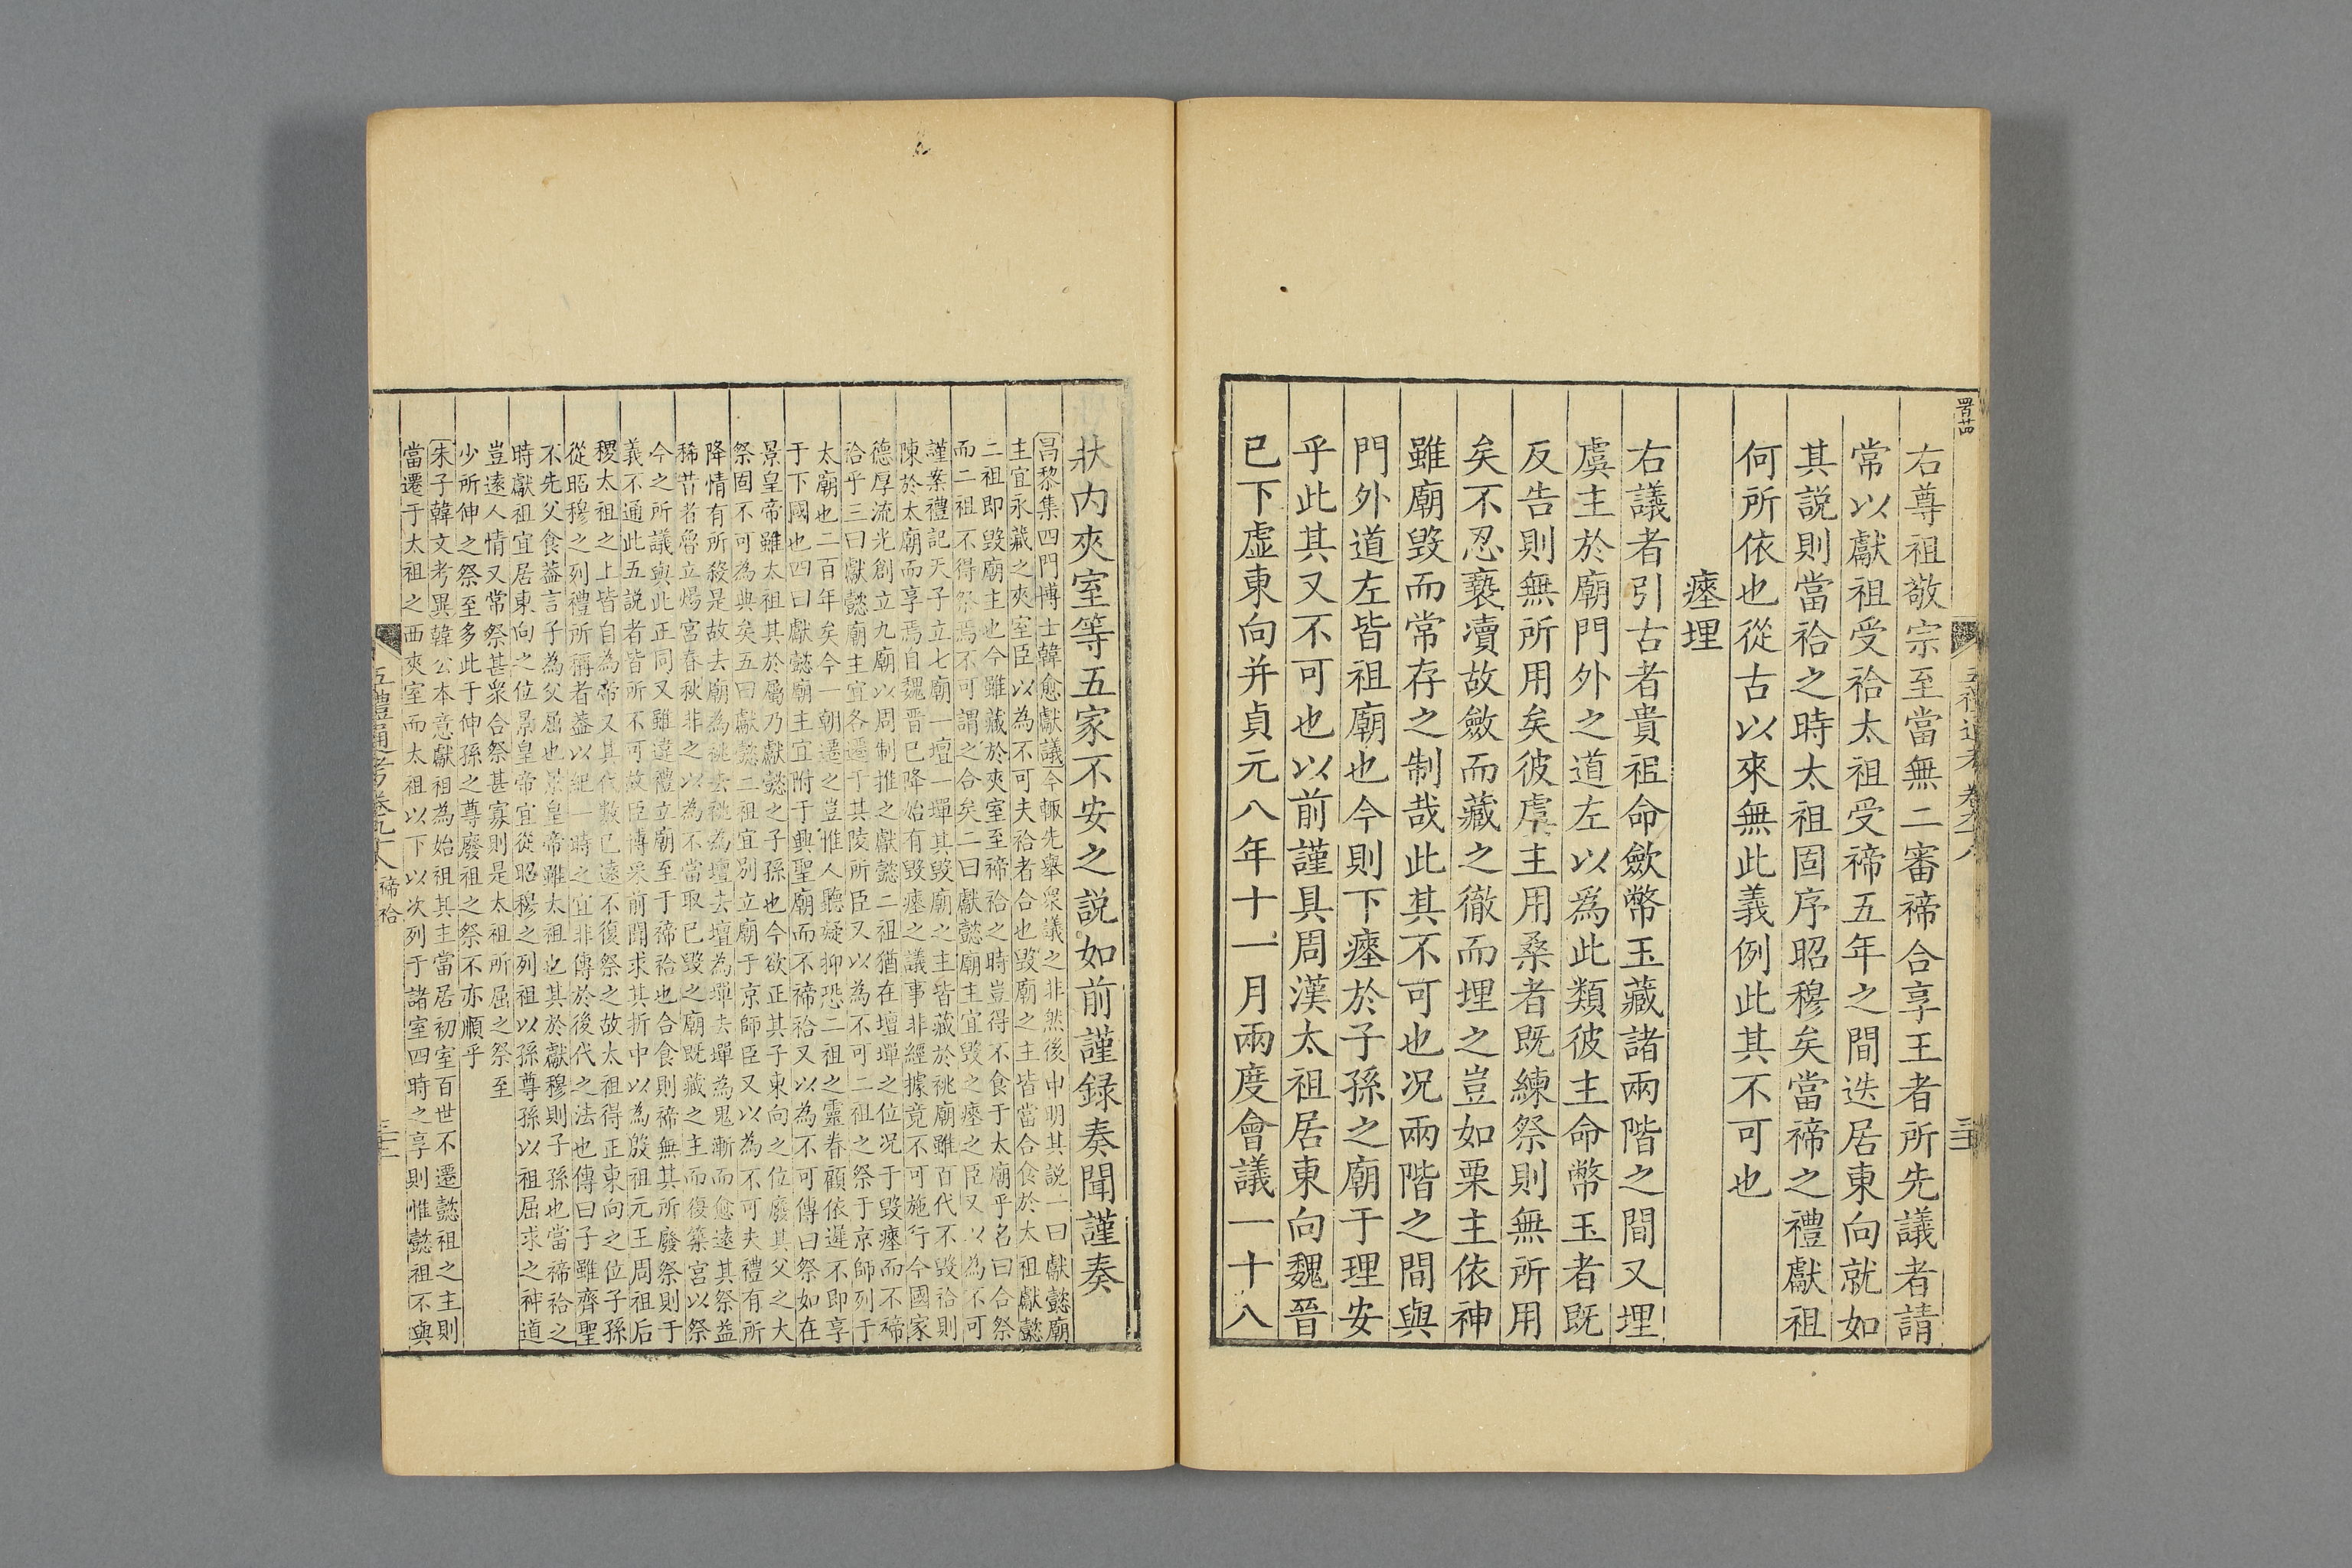 右尊祖敬宗至當無二審禘合享王者所先議者請
常以獻祖受祫太祖受禘五年之間迭居東向就如
其説則當祫之時太祖固序昭穆矣當禘之禮獻祖
何所依也從古以來無此義例此其不可也
瘞埋
右議者引古者貴祖命斂幣玉藏諸兩階之間又埋
虞主於廟門外之道左以爲此類彼主命幣玉者既
反告則無所用矣彼虞主用桑者既練祭則無所用
矣不忍褻瀆故斂而藏之徹而埋之豈如栗主依神
雖廟毀而常存之制哉此其不可也况兩階之間與
門外道左皆祖廟也今則下瘞於子孫之廟于理安
乎此其又不可也以前謹具周漢太祖居東向魏晉
已下虛東向并貞元八年十一月兩度會議一十八
狀内夾室等五家不安之説如前謹録奏聞謹奏
昌黎集四門博士韓愈獻議今輒先舉衆議之非然後申明其説一曰獻懿廟
主宜永藏之夾室臣以為不可夫祫者合也毀廟之主皆當合食於太祖獻懿
二祖即毀廟主也今雖藏於夾室至禘祫之時豈得不食于太廟乎名曰合祭
而二祖不得祭焉不可謂之合矣二曰獻懿廟主宜毀之瘞之臣又以為不可
謹案禮記天子立七廟一壇一墠其毀廟之主皆藏於祧廟雖百代不毀祫則
陳於太廟而享焉自魏晉已降始有毀瘞之議事非經據竟不可施行今國家
德厚流光創立九廟以周制推之獻懿二祖猶在壇墠之位况于毀瘞而不禘
祫乎三曰獻懿廟主宜各遷于其陵所臣又以為不可二祖之祭于京師列于
太廟也二百年矣今一朝遷之豈惟人聽疑抑恐二祖之靈眷顧依遲不即享
于下國也四曰獻懿廟主宜附于興聖廟而不禘祫又以為不可傳曰祭如在
景皇帝雖太祖其於屬乃獻懿之子孫也今欲正其子東向之位廢其父之大
祭固不可為典矣五曰獻懿二祖宜別立廟于京師臣又以為不可夫禮有所
降情有所殺是故去廟為祧去祧為壇去壇為墠去墠為鬼漸而愈遠其祭益
稀昔者魯立煬宮春秋非之以為不當取已毀之廟既藏之主而復築宮以祭
今之所議與此正同又雖違禮立廟至于禘祫也合食則禘無其所廢祭則于
義不通此五説者皆所不可故臣博采前聞求其折中以為殷祖元王周祖后
稷太祖之上皆自為帝又其代數已遠不復祭之故太祖得正東向之位子孫
從昭穆之列禮所稱者蓋以紀一時之宜非傳於後代之法也傳曰子雖齊聖
不先父食蓋言子為父屈也景皇帝雖太祖也其於獻穆則子孫也當禘祫之
時獻祖宜居東向之位景皇帝宜從昭穆之列祖以孫尊孫以祖屈求之神道
豈遠人情又常祭甚衆合祭甚寡則是太祖所屈之祭至
少所伸之祭至多此于伸孫之尊廢祖之祭不亦順乎
朱子韓文考異韓公本意獻祖為始祖其主當居初室百世不遷懿祖之主則
當遷于太祖之西夾室而太祖以下以次列于諸室四時之享則惟懿祖不與
五禮通考卷九十八 禘祫